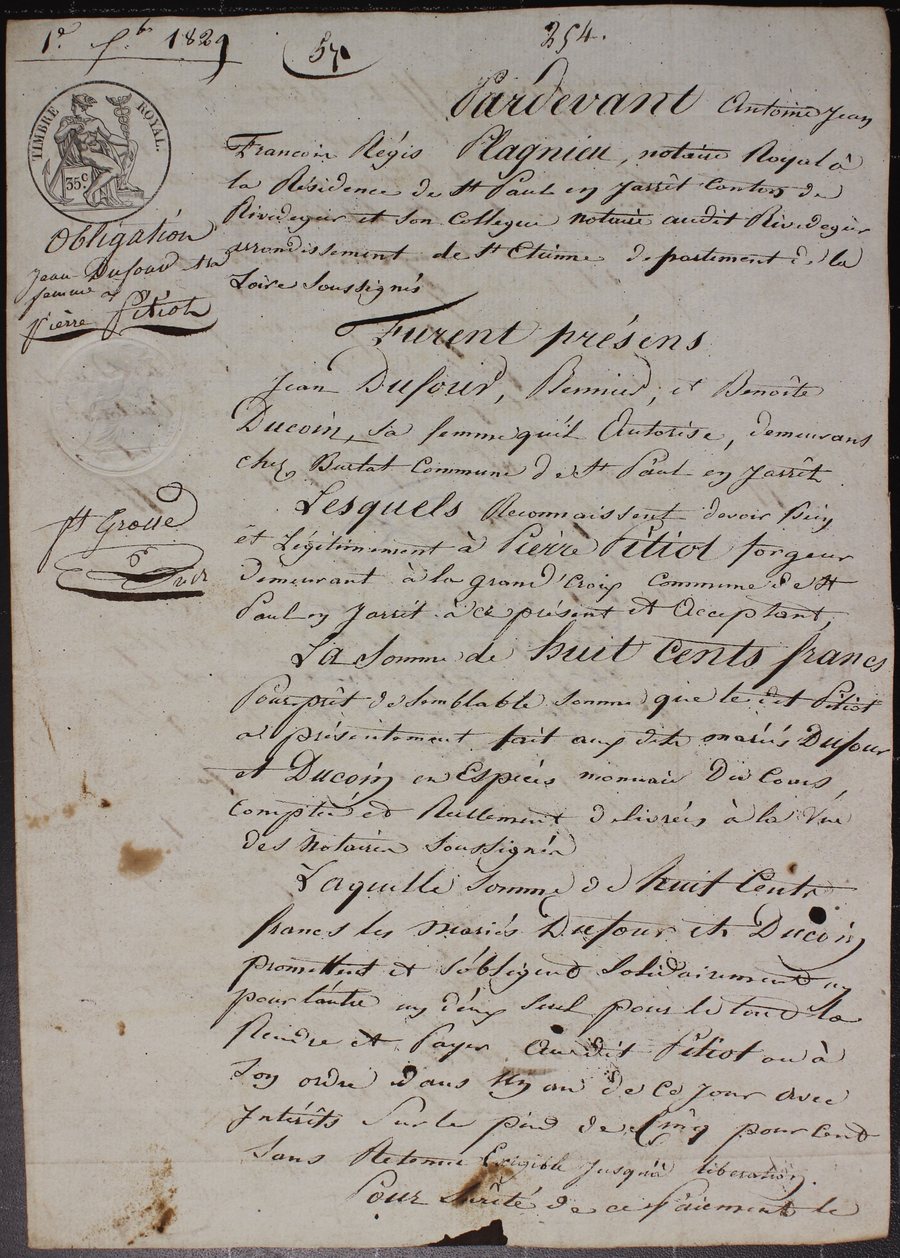 1er 8bre 1829
57
254.
TIMBRE ROYAL.
35c
Obligation
Jean Dufour et sa
femme a
Pierre Pitiot
Pardevant Antoine Jean
Francois Régis Plagnieu, notaire Royal à
la Résidence de St Paul en Jarrêt Canton de
Rivedegier et son Collegue notaire audit Rivedegier
arrondissement de St Etienne departement de la
Loire soussignés
Furent présens
Jean Dufour, , et Benoîte
Ducoin, sa femme qu'il Autorise, demeurans
chez Burlat Commune de St Paul en Jarrêt
Lesquels Reconnaissent devoir bien
et Légitimement à Pierre Pitiot forgeur
demeurant à la grand'Croix Commune de St
Paul en Jarrêt à ce présent et Acceptant,
La Somme de huit Cents francs
Pour prêt de semblable somme que le dit Pitiot
a présentement fait aux dits mariés Dufour
et Ducoin en Espèces monnaie Du Cours,
comptée et Réellement délivrés à la Vue
des Notaires soussignés
pr Grosse
Laquelle Somme de huit Cents
francs les Mariés Dufour et Ducoin
promettent et s'obligent Solidairement un
pour l'autre un d'eux seul pour le tout de la
Rendre et Payer Audit Pitiot ou à
son ordre dans Un an de ce jour avec
Intérêts Sur le pied de Cinq pour Cent
Sans Retenue Exigible jusqu'à libération.
Pour Sûreté de ce Paiement le